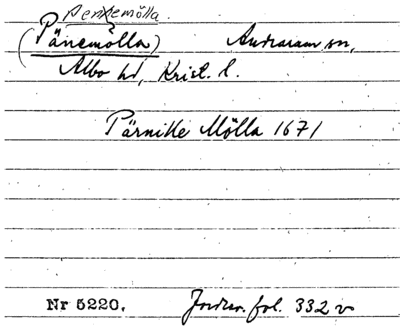 Penkemölla
(Pänemölla) Andrarum sn,
Albo hd, Krist. l.
Pärnike Mölla 1671
Nr 5220. Jordreg. fol. 332 v